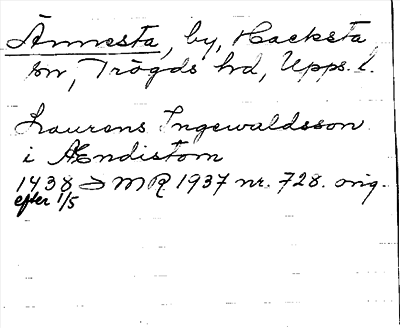 Ännesta, by, Hacksta
sn, Trögds hd, Upps. l.
Laurens Ingewaldsson
i Ændistom
1438 SMR 1937 nr. 728. orig.
efter 1/5